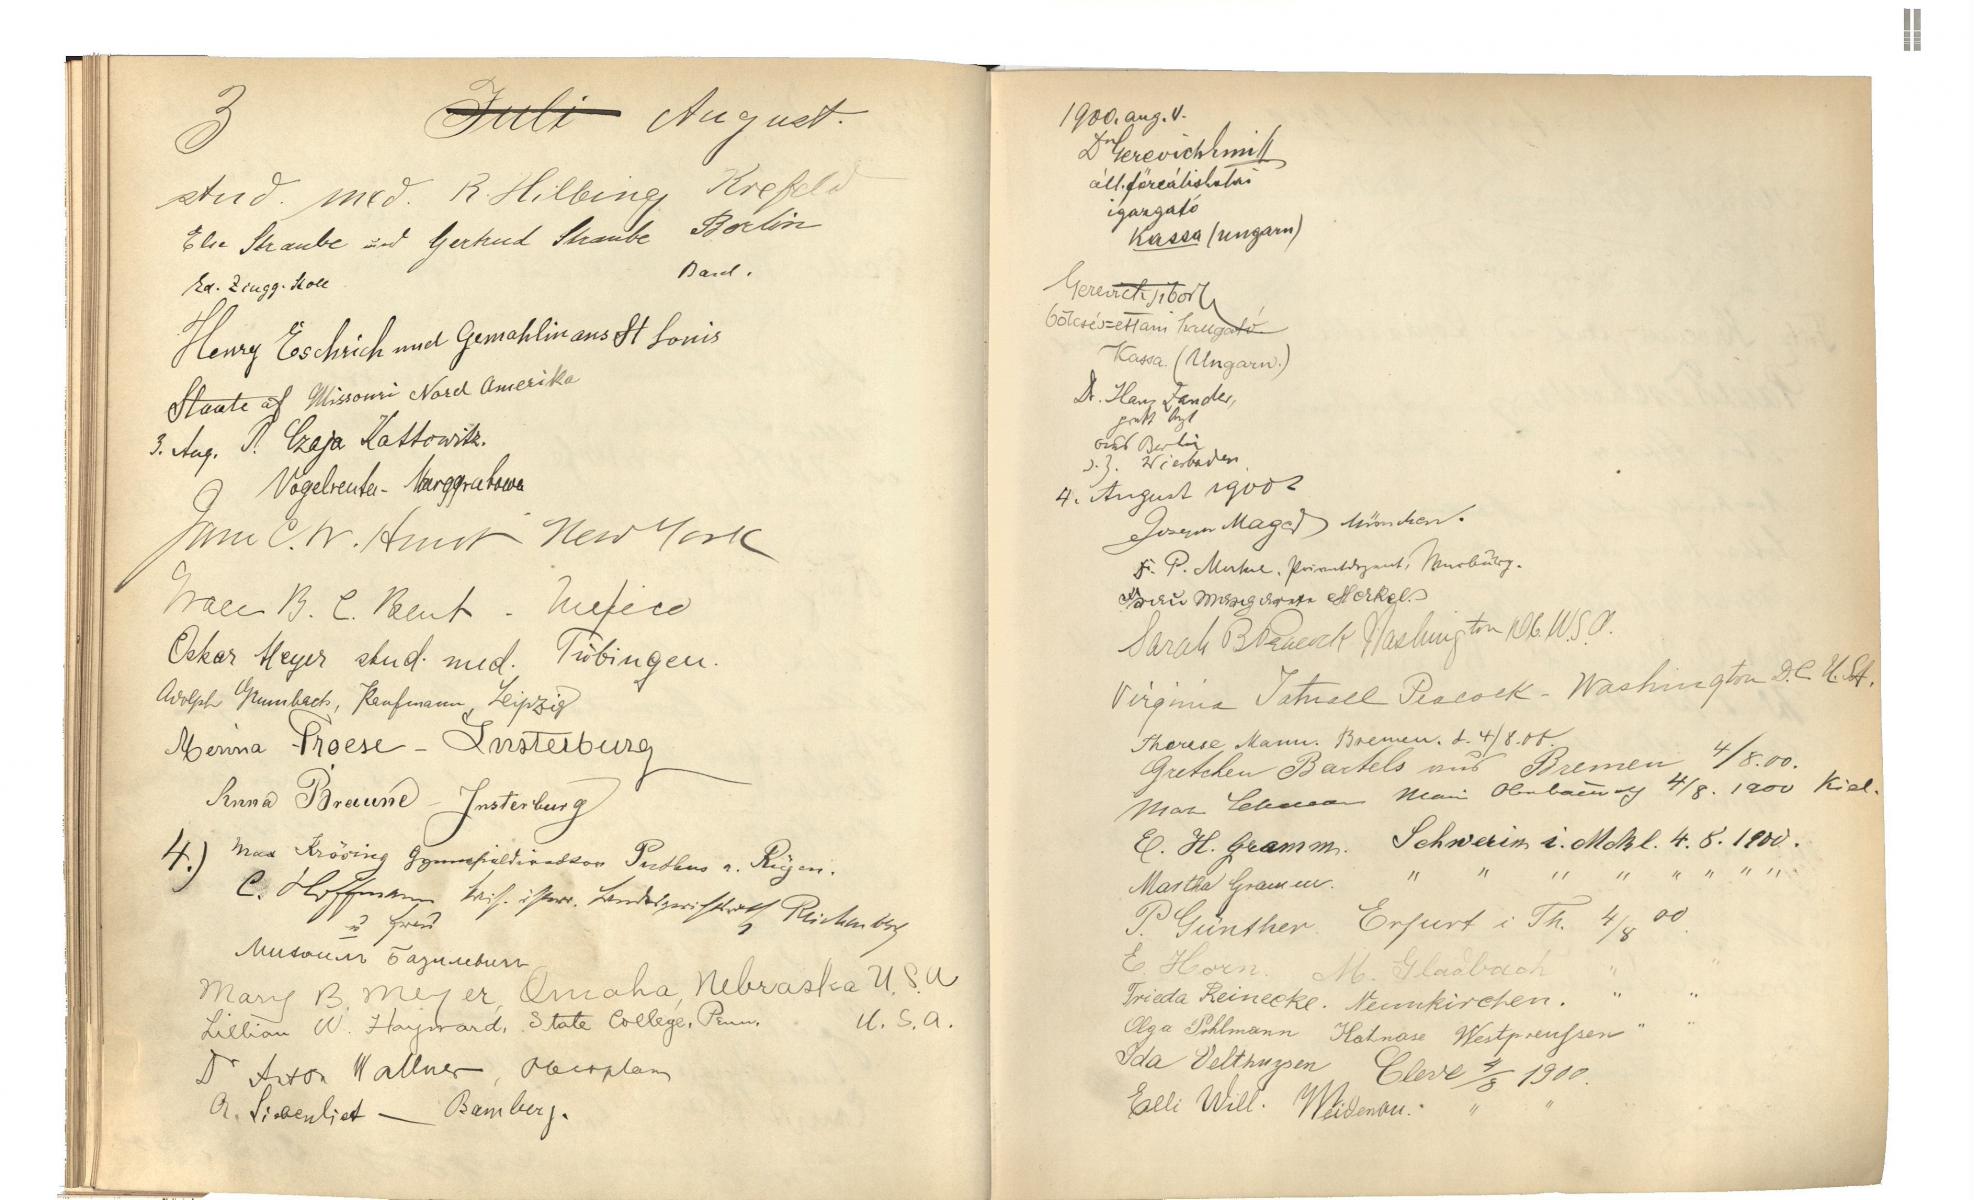 3 Juli August.
stud. med. R. Hilbing Krefeld
Else Straube und Gertrud Straube Berlin
Ed. Zingg. Basel.
Henry Eschrich und Gemahlin aus St Louis
Staate of Missouri Nord Amerika
3. Aug. P. Czaja Kattowitz.
Vogelreuter - Marggrabowa
Jane C. W. Hunt New York
Grace B. C. Brent - Mejico
Oskar Meyer stud. med. Tübingen.
Adolph Grumbach, Kaufmann, Leipzig
Menna Froese - Insterburg
Anna Braune - Insterburg
4.) Max Kröning Gymnasialdirektor Putbus a. Rügen.
C. Hoffmann Landsgerichtsrath Reichenberg
u Frau
Михаилъ Базилевичъ
Mary B. Meyer, Omaha, Nebraska U.S.A
Lillian W. Hayward, State College, Penn. U.S.A.
Dr Anton Wallner, Oberplan
A. Siebenlist — Bamberg.
1900. aug. 4.
Dr Gerevich Emil
áll. főreáliskolai
igazgató
Kassa (Ungarn)
Gerevich Tibor
bölcsészettani hallgató
Kassa (Ungarn.)
Dr. Hans Zander,
prakt Arzt
aus Berlin
z. Z. Wiesbaden
4. August 1900
Maged München.
Dr. P. Merkel. Privatdozent,
Frau Margarete Merkel.
Sarah B Peacock Washington D.C. U.S.A.
Virginia Tatnall Peacock - Washington D.C U.S.A.
Therese Mann. Bremen. d. 4/8.00.
Gretchen Bartels aus Bremen 4/8.00.
Max 4/8. 1900 Kiel.
E. H. Gramm. Schwerin i. Mckl. 4. 8. 1900.
Martha Gramm. " " " " " " " "
P. Günther. Erfurt i Th. 4/8 00
E. Horn. M. Gladbach " "
Frieda Reinecke. Neunkirchen. " "
Olga Pohlmann Westpreußen " "
Ida Velthuysen Cleve 4/8 1900.
Elli Will. Weidenau. " "